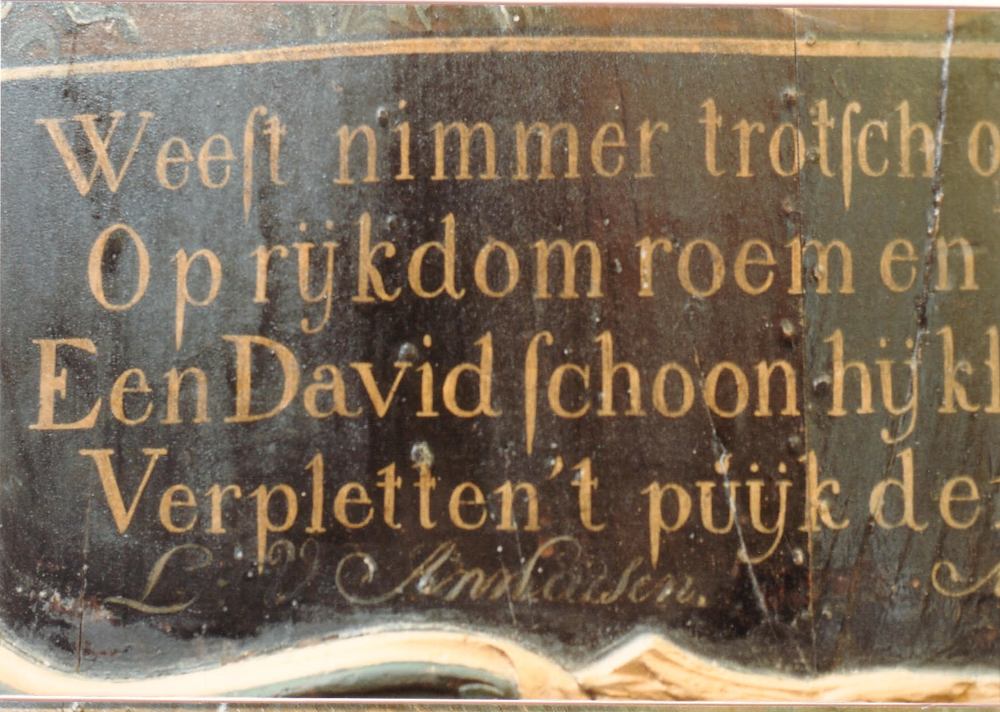 Weeſt nimmer trotſch o
Op rijkdom roem en
Een David ſchoon hij kl
Verpletten't puijk de
L: V